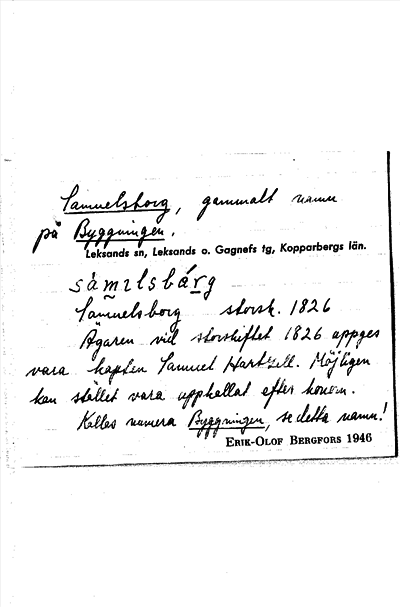 Samuelsborg, gammalt namn
på Byggningen.
Leksands sn, Leksands o. Gagnefs tg, Kopparbergs län.
sàmɩlsbárg
Samuelsborg storsk. 1826
Ägaren vid storskiftet 1826 uppges
vara kapten Samuel Hartzell. Möjligen
kan stället vara uppkallat efter honom.
Kallas numera Byggningen, se detta namn!
ERIK-OLOF BERGFORS 1946